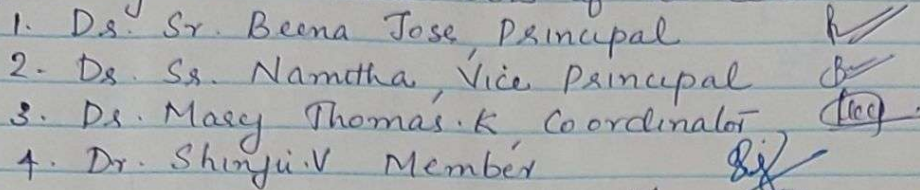 1. Dr. Sr. Beena Jose, Principal
2. Dr. Sr. Namitha, Vice Principal
3. Dr. Mary Thomas. K Coordinator
4. Dr. Shinju. V Member